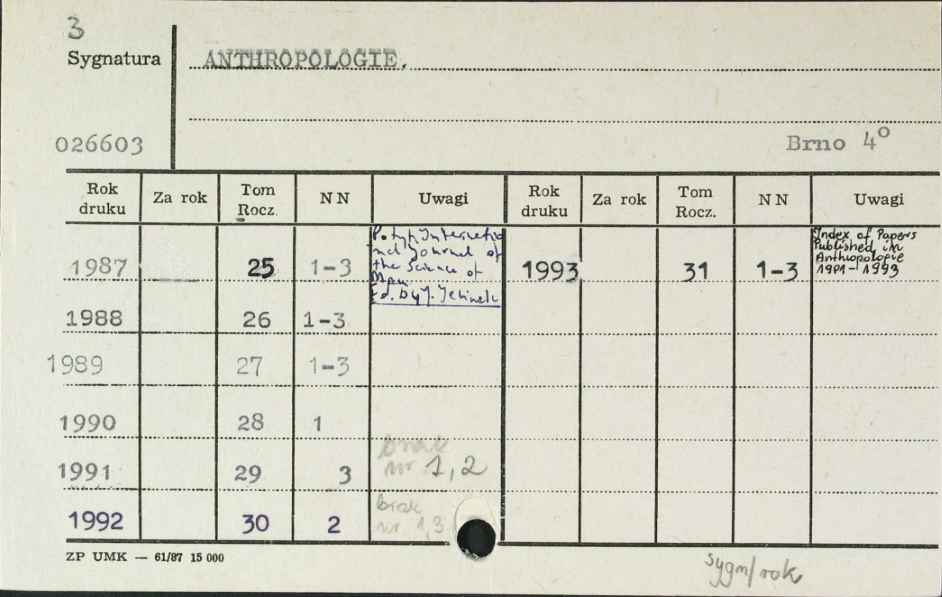 3
Sygnatura
ANTHROPOLOGIE.
026603
Brno 4°
Rok druku Za rok Tom Rocz. NN Uwagi Rok druku Za rok Tom Rocz. NN Uwagi
1987 25 1-3 1993 31 1-3
International Journal of
the Science of
Man
Ed. by J. Jelinek
Index of Papers
Published in
Anthropologie
1981-1993
1988 26 1-3
1989 27 1-3
1990 28 1
1991 29 3 brak
nr 1,2
1992 30 2 brak
nr 1,3
ZP UMK — 61/87 15 000
sygn/rok